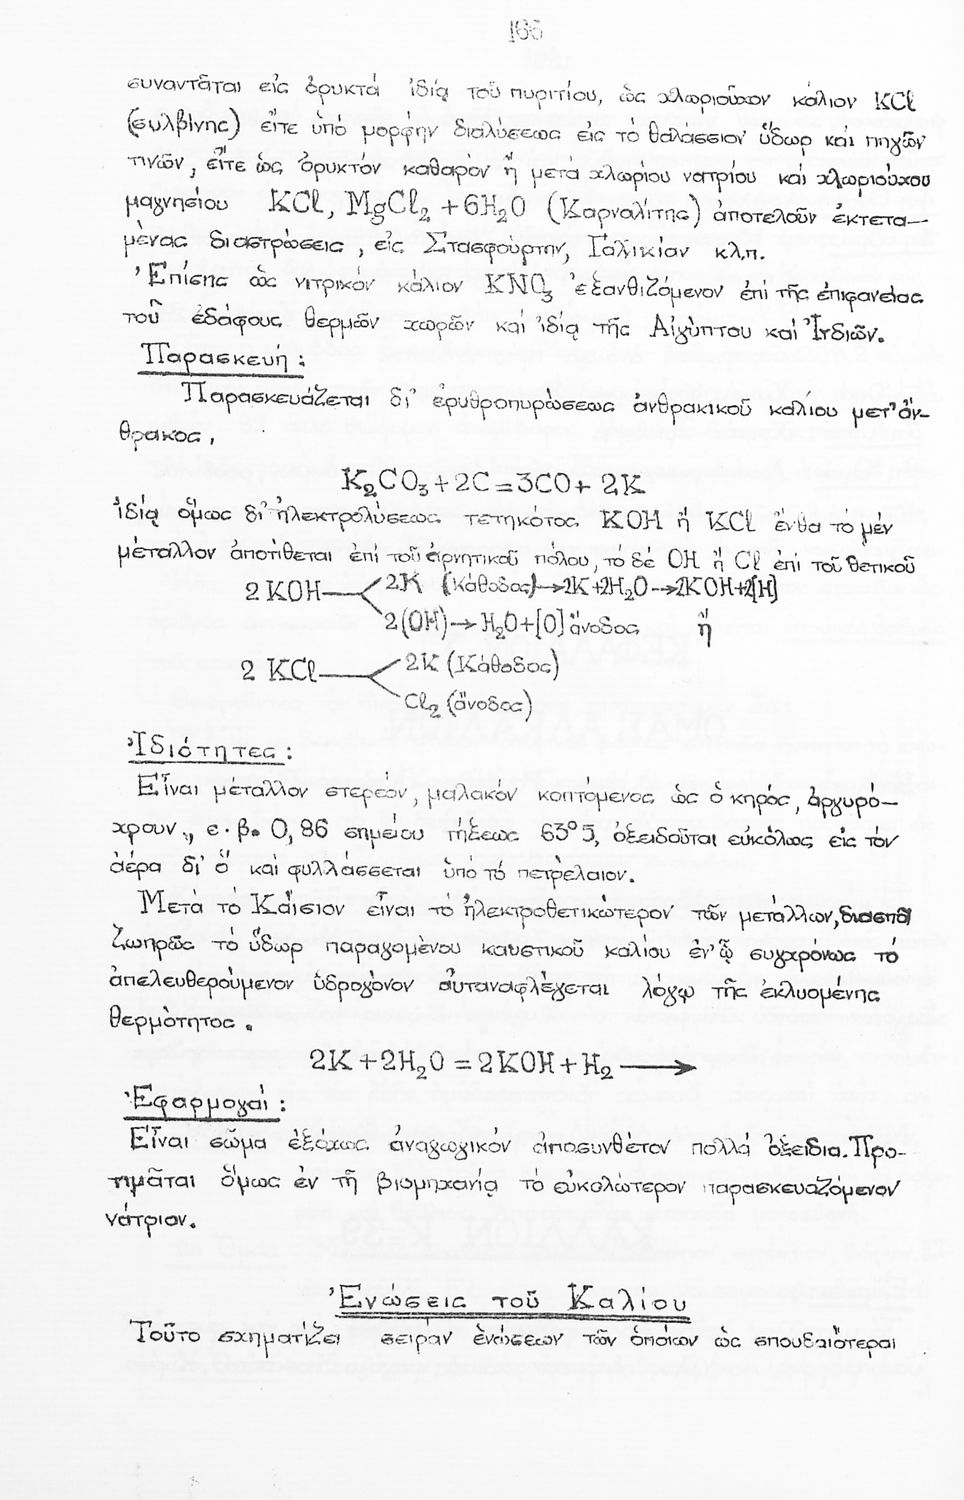 166
συναντᾶται εἰς ὀρυκτά ἰδίᾳ τοῦ πυριτίου, ὡς χλωριοῦχον κάλιον KCl
(συλβίνης) εἴτε ὑπό μορφήν διαλύσεως εἰς τό θαλάσσιον ὕδωρ καί πηγῶν
τινῶν, εἴτε ὡς ὀρυκτόν καθαρόν ἤ μετά χλωρίου νατρίου καί χλωριούχου
μαγνησίου KCl, MgCl₂ + 6H₂O (Καρναλίτης) ἀποτελοῦν ἐκτετα—
μένας διαστρώσεις, εἰς Στασφούρτην, Γαλικίαν κλ.π.
Ἐπίσης ὡς νιτρικόν κάλιον KNO₃ ἐξανθιζόμενον ἐπί τῆς ἐπιφανείας
τοῦ ἐδάφους θερμῶν χωρῶν καί ἰδίᾳ τῆς Αἰγύπτου καί Ἰνδιῶν.
Παρασκευή:
Παρασκευάζεται δι' ἐρυθροπυρώσεως ἀνθρακικοῦ καλίου μετ' ἄν-
θρακος,
K₂CO₃ + 2C = 3CO + 2K
ἰδίᾳ ὅμως δι' ἠλεκτρολύσεως τετηκότος KOH ἤ KCl ἔνθα τό μέν
μέταλλον ἀποτίθεται ἐπί τοῦ ἀρνητικοῦ πόλου, τό δέ OH ἤ Cl ἐπί τοῦ θετικοῦ
2K (Κάθοδος)→2K+2H₂O→2KOH+2[H]
2 KOH—
2(OH)→H₂O+[O] ἄνοδος ἤ
2K (Κάθοδος)
2 KCl—
Cl₂ (ἄνοδος)
Ἰδιότητες:
Εἶναι μέταλλον στερεόν, μαλακόν κοπτόμενος ὡς ὁ κηρός, ἀργυρό—
χρουν., ε.β. 0,86 σημείου τήξεως 63°5, ὀξειδοῦται εὐκόλως εἰς τόν
ἀέρα δι' ὅ καί φυλλάσσεται ὑπό τό πετρέλαιον.
Μετά τό Καίσιον εἶναι τό ἠλεκτροθετικώτερον τῶν μετάλλων, διασπᾷ
ζωηρῶς τό ὕδωρ παραγομένου καυστικοῦ καλίου ἐν' ᾧ συγχρόνως τό
ἀπελευθερούμενον ὑδρογόνον αὐταναφλέγεται λόγῳ τῆς ἐκλυομένης
θερμότητος.
2K + 2H₂O = 2KOH + H₂ →
Ἐφαρμογαί:
Εἶναι σῶμα ἐξόχως ἀναγωγικόν ἀποσυνθέτον πολλά ὀξείδια. Προ-
τιμᾶται ὅμως ἐν τῇ βιομηχανίᾳ τό εὐκολώτερον παρασκευαζόμενον
νάτριον.
Ἑνώσεις τοῦ Καλίου
Τοῦτο σχηματίζει σειράν ἑνώσεων τῶν ὁποίων ὡς σπουδαιότεραι